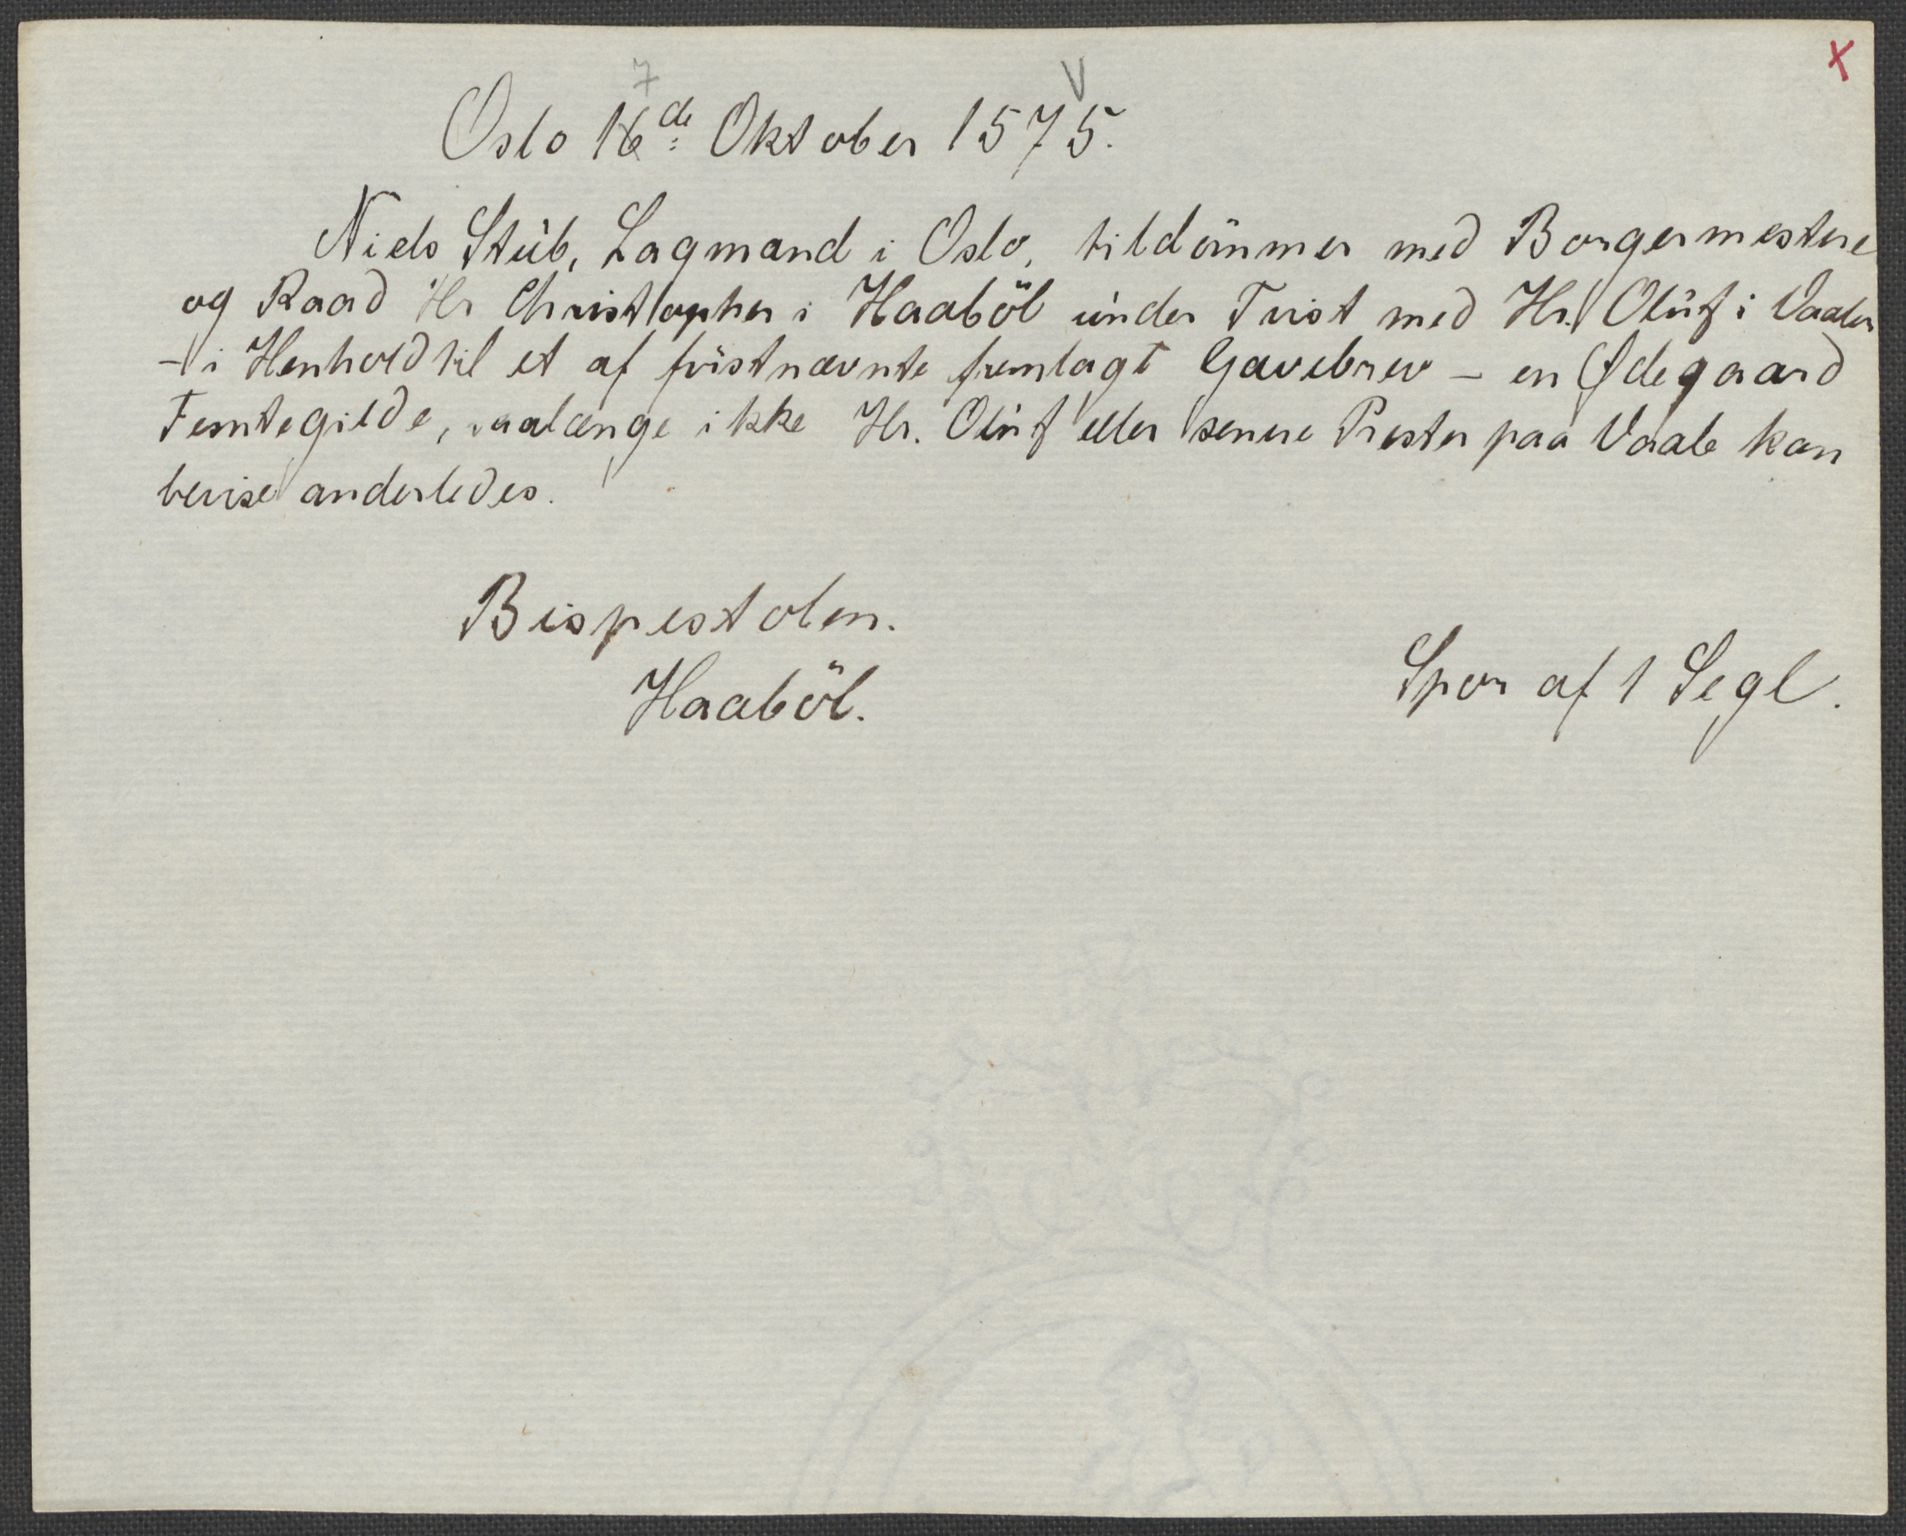 x
7 V
Oslo 16de Oktober 1575.
Niels Stüb, Lagmand i Oslo, tildömmer med Borgermestere
og Raad Hr Christopher i Haaböl ünder Tvist med Hr. Olüf i Vaaler
– i Henhold til et af förstnævnte fremlagt Gavebrev – en Ødegaard
Femtegilde, saalænge ikke Hr. Olüf eller senere Prester paa Vaale kan
bevise anderledes.
Bispestolen.
Haaböl.
Spor af 1 Segl.